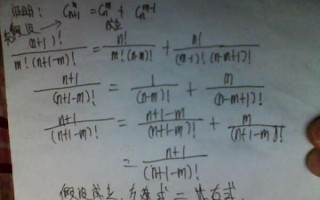 证明: C_{n+1}^{m} = C_{n}^{m} + C_{n}^{m-1}
成立
\frac{(n+1)!}{m!(n+1-m)!} = \frac{n!}{m!(n-m)!} + \frac{n!}{(m-1)!(n-m+1)!}
\frac{n+1}{(n+1-m)!} = \frac{1}{(n-m)!} + \frac{m}{(n-m+1)!}
\frac{n+1}{(n+1-m)!} = \frac{n+1-m}{(n+1-m)!} + \frac{m}{(n+1-m)!}
= \frac{n+1}{(n+1-m)!}
假设成立,